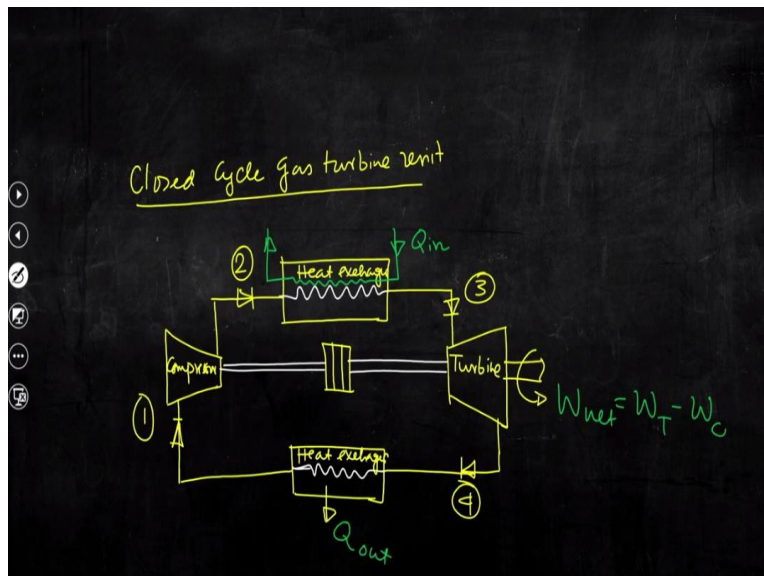 Closed Cycle gas turbine unit
Qin
②
Heat exchager
③
Compressor
Turbine
Wnet = WT - WC
①
Heat exchager
④
Qout